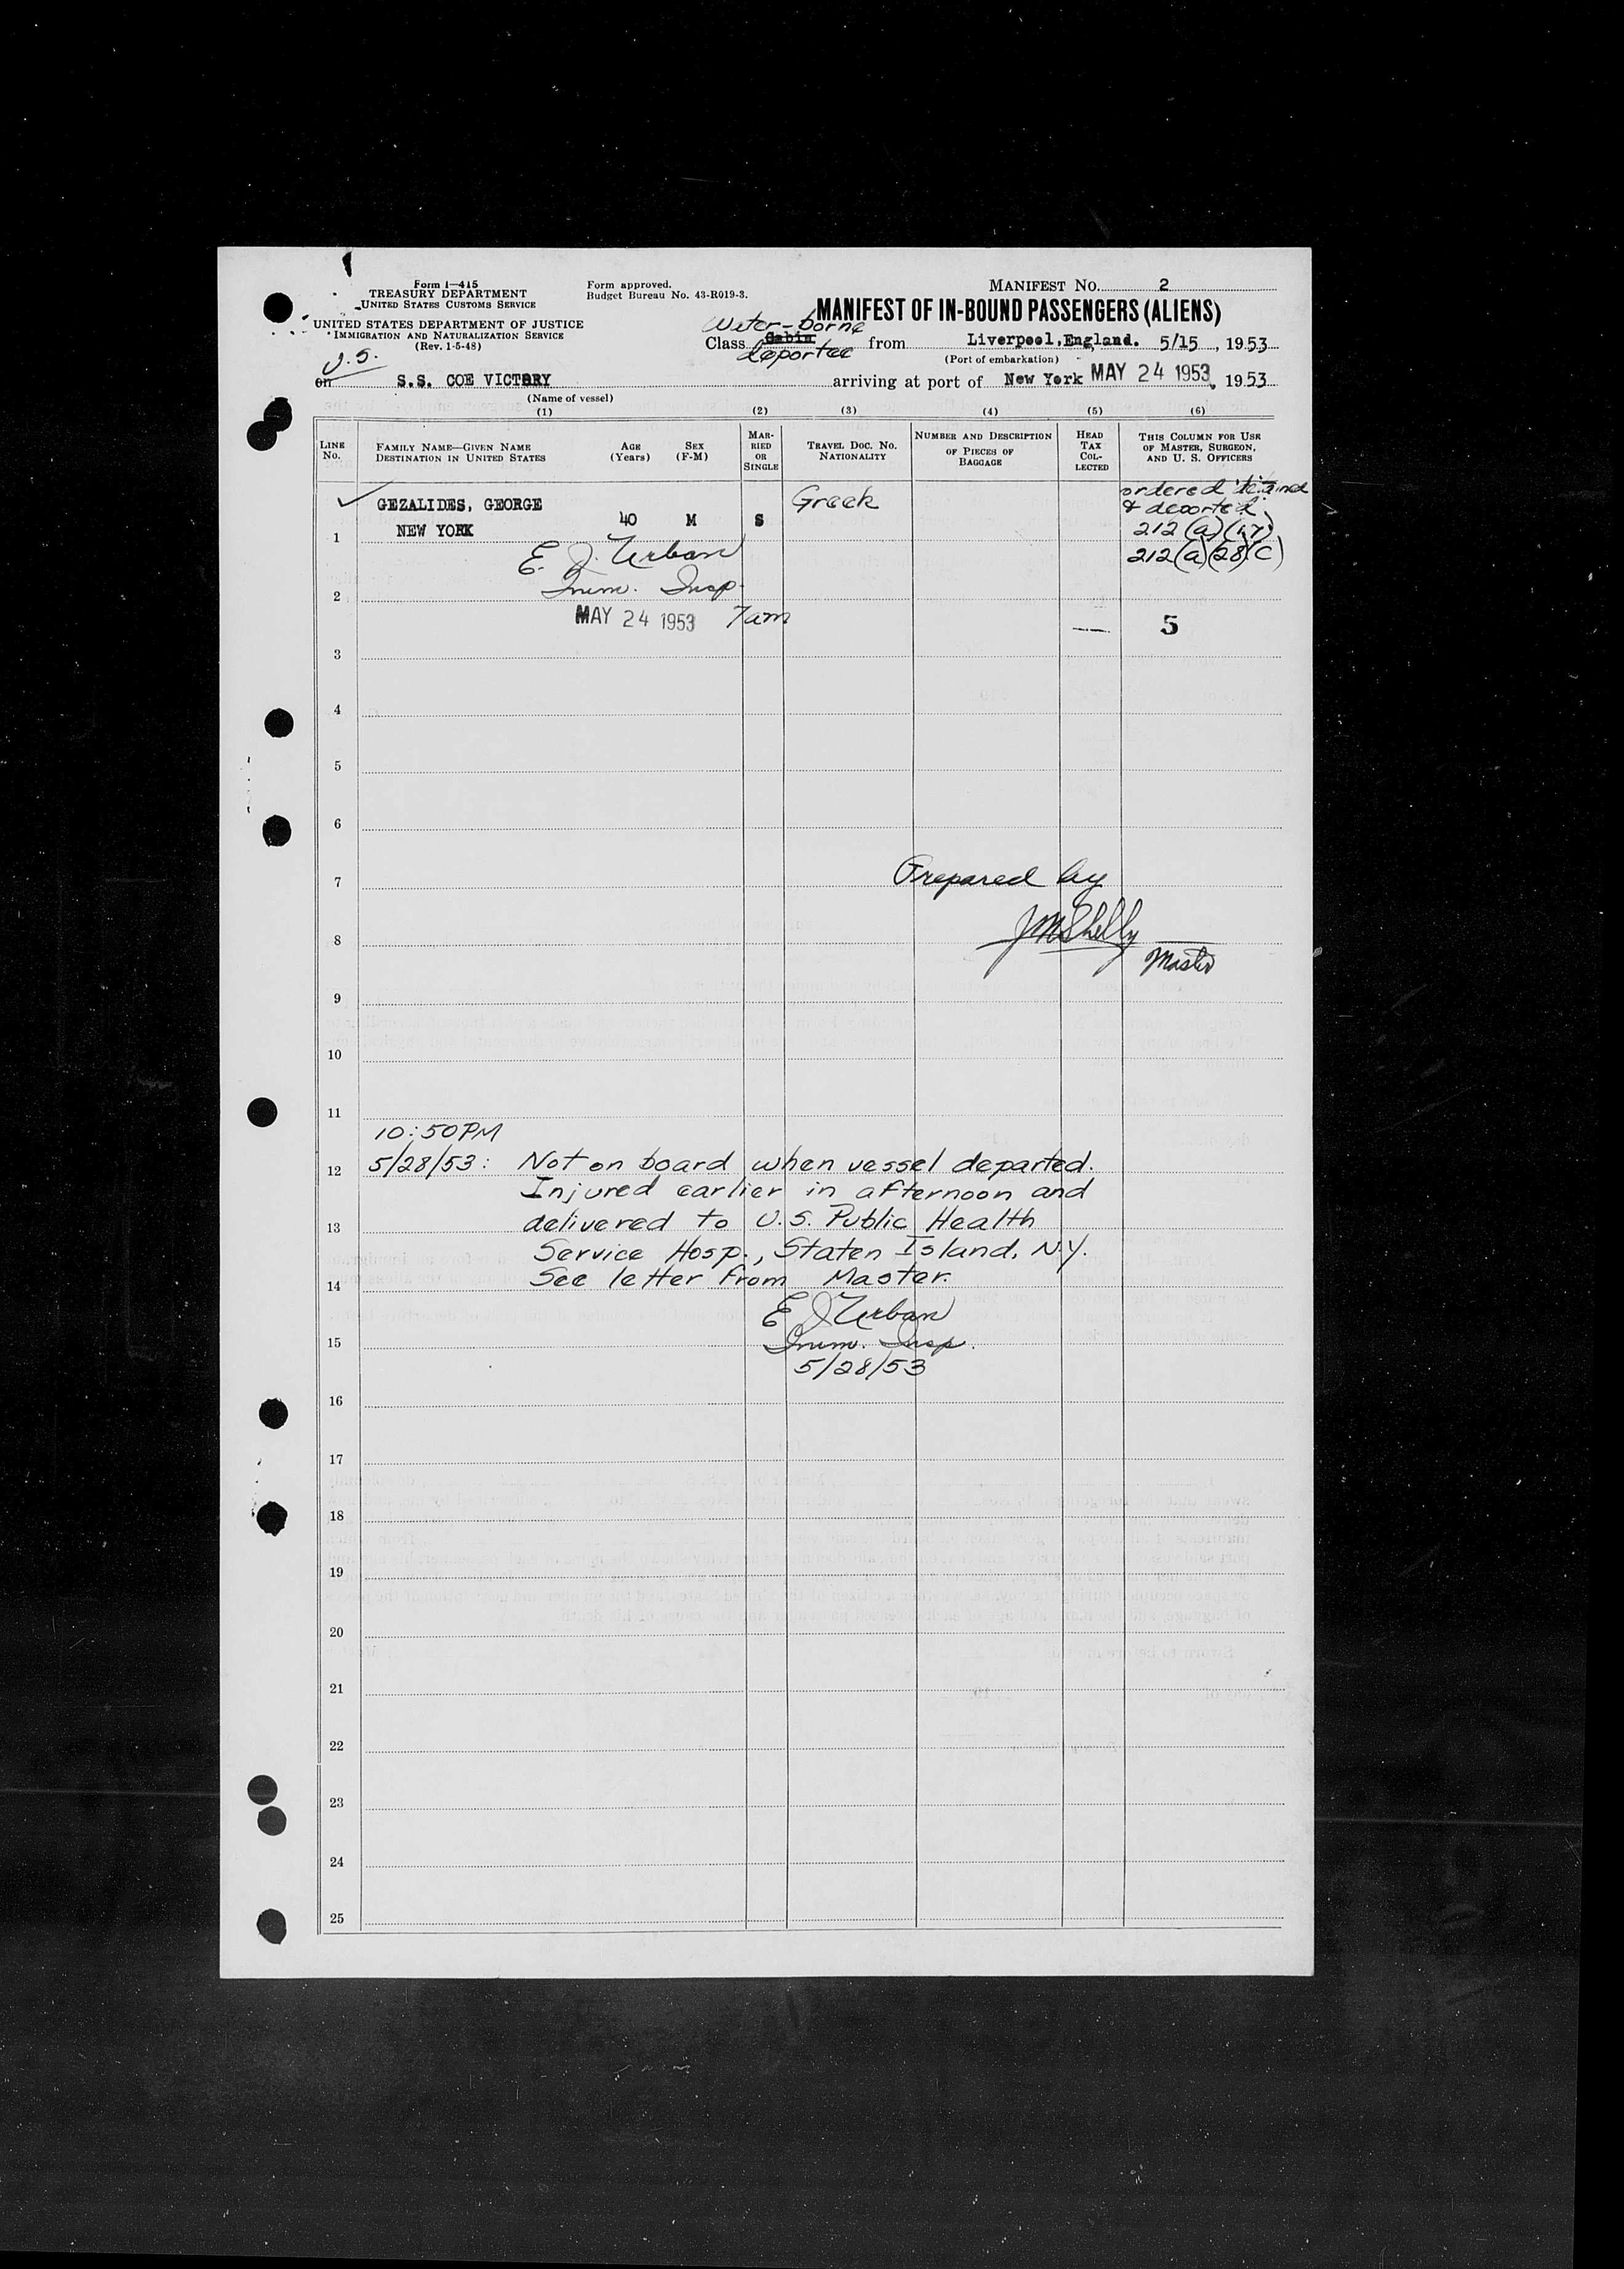 Form I-415
TREASURY DEPARTMENT
UNITED STATES CUSTOMS SERVICE
UNITED STATES DEPARTMENT OF JUSTICE
IMMIGRATION AND NATURALIZATION SERVICE
(Rev. 1-5-48)
Form approved.
Budget Bureau No. 43-R019-3.
MANIFEST No. 2
MANIFEST OF IN-BOUND PASSENGERS (ALIENS)
Water-borne
Class Cabin from Liverpool, England. 5/15, 1953
deportee
(Port of embarkation)
U.S.
on S.S. COE VICTORY arriving at port of New York MAY 24 1953, 1953
(Name of vessel)
(1) (2) (3) (4) (5) (6)
LINE No.
FAMILY NAME—GIVEN NAME
DESTINATION IN UNITED STATES
AGE (Years)
SEX (F-M)
MARRIED OR SINGLE
TRAVEL DOC. No.
NATIONALITY
NUMBER AND DESCRIPTION OF PIECES OF BAGGAGE
HEAD TAX COLLECTED
THIS COLUMN FOR USE OF MASTER, SURGEON, AND U. S. OFFICERS
GEZALIDES, GEORGE Greek
1 NEW YORK 40 M S
ordered detained
& deported
212 (a) (17)
212(a)(28)(C)
E. J. Urban
2 Imm. Insp.
MAY 24 1953 7am — 5
3
4
5
6
7 Prepared by
8 JM Shelly
Master
9
10
11
10:50PM
12 5/28/53: Not on board when vessel departed.
Injured earlier in afternoon and
13 delivered to U.S. Public Health
Service Hosp., Staten Island, N.Y.
14 See letter from Master.
E J Urban
15 Imm. Insp.
5/28/53
16
17
18
19
20
21
22
23
24
25